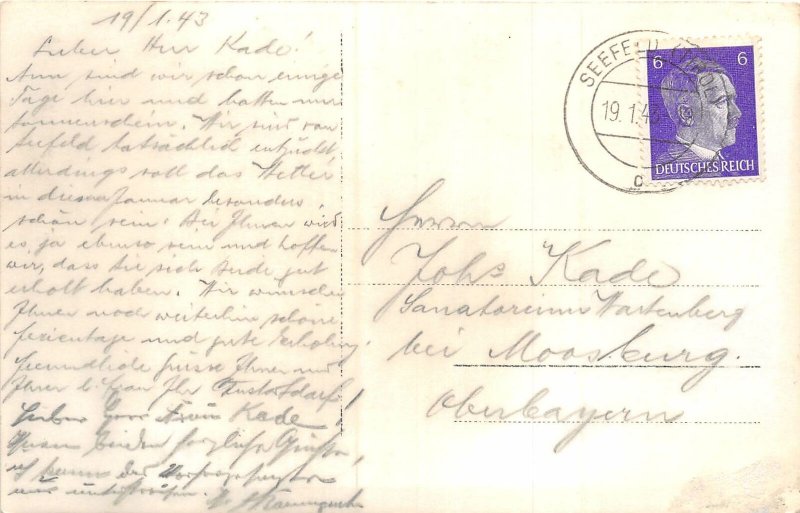 19/1.43
Lieber Herr Kade!
Nun sind wir schon einige
Tage hier und hatten nur
Sonnenschein. Wir sind von
Seefeld tatsächlich entzückt,
allerdings soll das Wetter
in diesem Januar besonders
schön sein. Bei Ihnen wird
es ja ebenso sein und hoffen
wir, dass Sie sich beide gut
erholt haben. Wir wünschen
Ihnen noch weiterhin schöne
Ferientage und gute Erholung.
Freundliche Grüsse Ihnen und
Ihrer l. Frau Ihr
Lieber Herr Frau Kade!
Ihnen beiden herzliche Grüße,
ich kann der
nur unterstreichen.
SEEFELD (TIROL)
19.1.43
c
6 6
DEUTSCHES REICH
Herrn
Johs Kade
Sanatorium Wartenberg
bei Moosburg.
Oberbayern